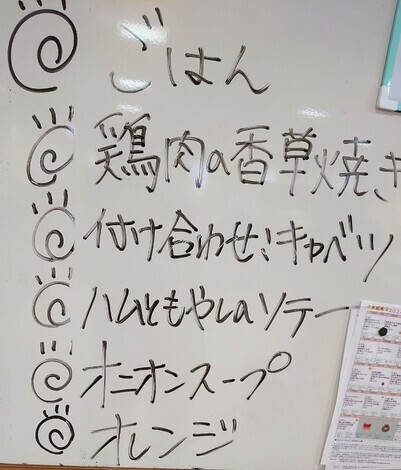 ごはん
鶏肉の香草焼き
付け合わせ:キャベツ
ハムともやしのソテー
オニオンスープ
オレンジ